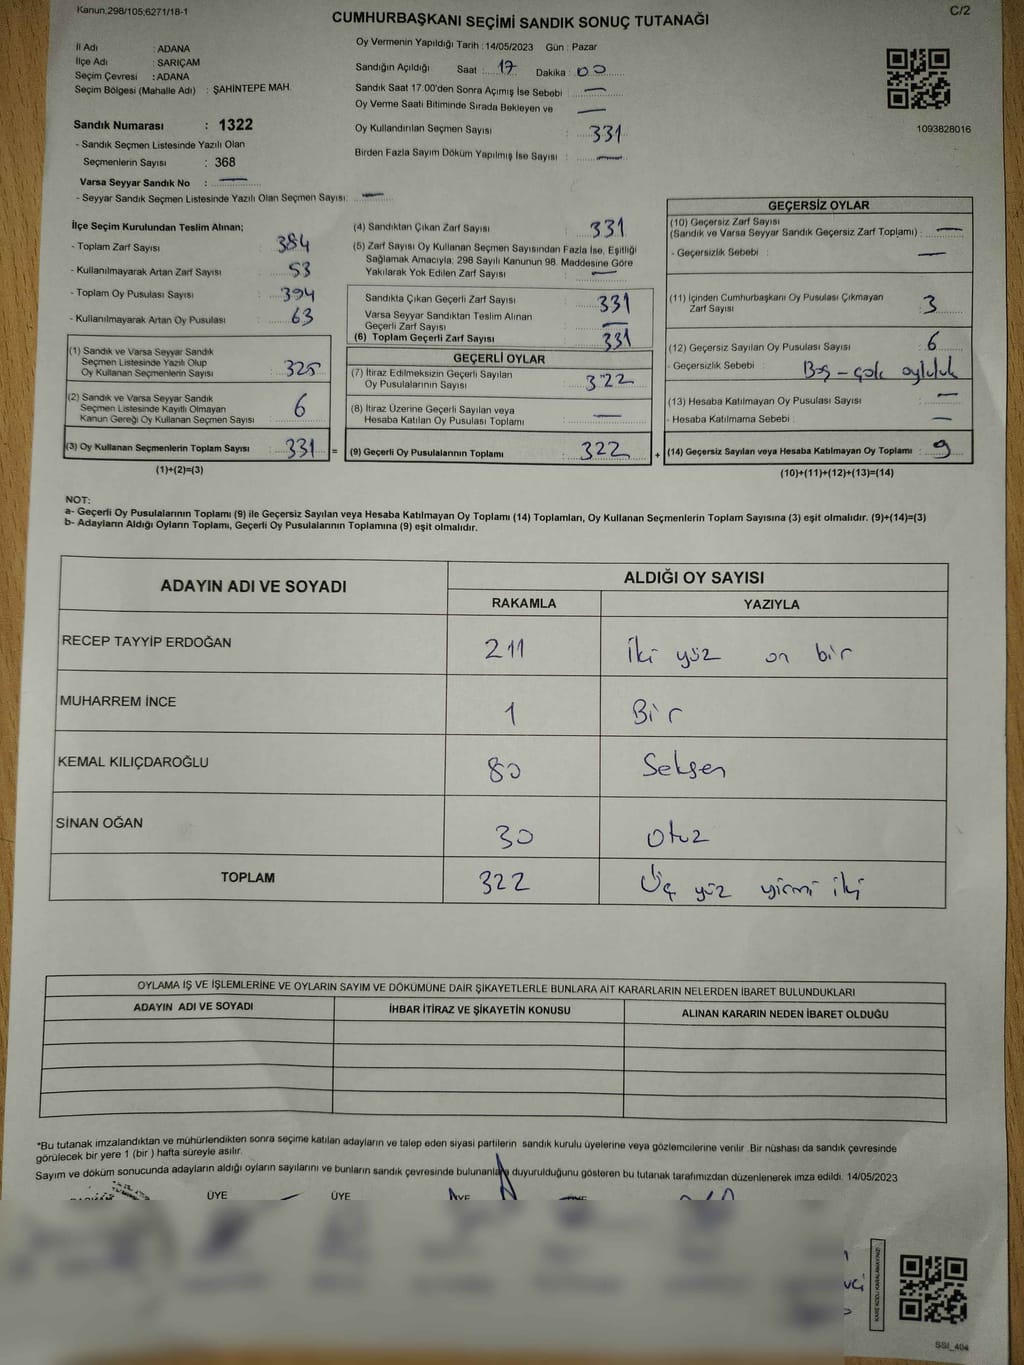 Kanun;298/105;6271/18-1
C/2
CUMHURBAŞKANI SEÇİMİ SANDIK SONUÇ TUTANAĞI
İl Adı : ADANA
İlçe Adı : SARIÇAM
Seçim Çevresi : ADANA
Seçim Bölgesi (Mahalle Adı) : ŞAHİNTEPE MAH.
Sandık Numarası : 1322
- Sandık Seçmen Listesinde Yazılı Olan
Seçmenlerin Sayısı : 368
Varsa Seyyar Sandık No : —
- Seyyar Sandık Seçmen Listesinde Yazılı Olan Seçmen Sayısı: —
Oy Vermenin Yapıldığı Tarih : 14/05/2023 Gün : Pazar
Sandığın Açıldığı Saat : 17 Dakika : 00
Sandık Saat 17.00'den Sonra Açımış İse Sebebi : —
Oy Verme Saati Bitiminde Sırada Bekleyen ve —
Oy Kullandırılan Seçmen Sayısı : 331
Birden Fazla Sayım Döküm Yapılmış İse Sayısı : —
1093828016
İlçe Seçim Kurulundan Teslim Alınan;
- Toplam Zarf Sayısı : 384
- Kullanılmayarak Artan Zarf Sayısı : 53
- Toplam Oy Pusulası Sayısı : 394
- Kullanılmayarak Artan Oy Pusulası : 63
(1) Sandık ve Varsa Seyyar Sandık
Seçmen Listesinde Yazılı Olup
Oy Kullanan Seçmenlerin Sayısı : 325
(2) Sandık ve Varsa Seyyar Sandık
Seçmen Listesinde Kayıtlı Olmayan
Kanun Gereği Oy Kullanan Seçmen Sayısı : 6
(3) Oy Kullanan Seçmenlerin Toplam Sayısı : 331
(1)+(2)=(3)
(4) Sandıktan Çıkan Zarf Sayısı : 331
(5) Zarf Sayısı Oy Kullanan Seçmen Sayısından Fazla İse, Eşitliği
Sağlamak Amacıyla; 298 Sayılı Kanunun 98. Maddesine Göre
Yakılarak Yok Edilen Zarf Sayısı : —
Sandıkta Çıkan Geçerli Zarf Sayısı : 331
Varsa Seyyar Sandıktan Teslim Alınan
Geçerli Zarf Sayısı : —
(6) Toplam Geçerli Zarf Sayısı : 331
GEÇERLİ OYLAR
(7) İtiraz Edilmeksizin Geçerli Sayılan
Oy Pusulalarının Sayısı : 322
(8) İtiraz Üzerine Geçerli Sayılan veya
Hesaba Katılan Oy Pusulası Toplamı : —
= (9) Geçerli Oy Pusulalarının Toplamı : 322
GEÇERSİZ OYLAR
(10) Geçersiz Zarf Sayısı
(Sandık ve Varsa Seyyar Sandık Geçersiz Zarf Toplamı) : —
- Geçersizlik Sebebi : —
(11) İçinden Cumhurbaşkanı Oy Pusulası Çıkmayan
Zarf Sayısı : 3
(12) Geçersiz Sayılan Oy Pusulası Sayısı : 6
- Geçersizlik Sebebi : Boş – çok oyluluk
(13) Hesaba Katılmayan Oy Pusulası Sayısı : —
- Hesaba Katılmama Sebebi : —
+ (14) Geçersiz Sayılan veya Hesaba Katılmayan Oy Toplamı : 9
(10)+(11)+(12)+(13)=(14)
NOT:
a- Geçerli Oy Pusulalarının Toplamı (9) ile Geçersiz Sayılan veya Hesaba Katılmayan Oy Toplamı (14) Toplamları, Oy Kullanan Seçmenlerin Toplam Sayısına (3) eşit olmalıdır. (9)+(14)=(3)
b- Adayların Aldığı Oyların Toplamı, Geçerli Oy Pusulalarının Toplamına (9) eşit olmalıdır.
ADAYIN ADI VE SOYADI ALDIĞI OY SAYISI
RAKAMLA YAZIYLA
RECEP TAYYİP ERDOĞAN 211 İki yüz on bir
MUHARREM İNCE 1 Bir
KEMAL KILIÇDAROĞLU 80 Seksen
SİNAN OĞAN 30 Otuz
TOPLAM 322 Üç yüz yirmi iki
OYLAMA İŞ VE İŞLEMLERİNE VE OYLARIN SAYIM VE DÖKÜMÜNE DAİR ŞİKAYETLERLE BUNLARA AİT KARARLARIN NELERDEN İBARET BULUNDUKLARI
ADAYIN ADI VE SOYADI İHBAR İTİRAZ VE ŞİKAYETİN KONUSU ALINAN KARARIN NEDEN İBARET OLDUĞU
*Bu tutanak imzalandıktan ve mühürlendikten sonra seçime katılan adayların ve talep eden siyasi partilerin sandık kurulu üyelerine veya gözlemcilerine verilir. Bir nüshası da sandık çevresinde
görülecek bir yere 1 (bir ) hafta süreyle asılır.
Sayım ve döküm sonucunda adayların aldığı oyların sayılarını ve bunların sandık çevresinde bulunanlara duyurulduğunu gösteren bu tutanak tarafımızdan düzenlenerek imza edildi. 14/05/2023
ÜYE ÜYE
KARE KODU KARALAMAYINIZ!
SSI_404